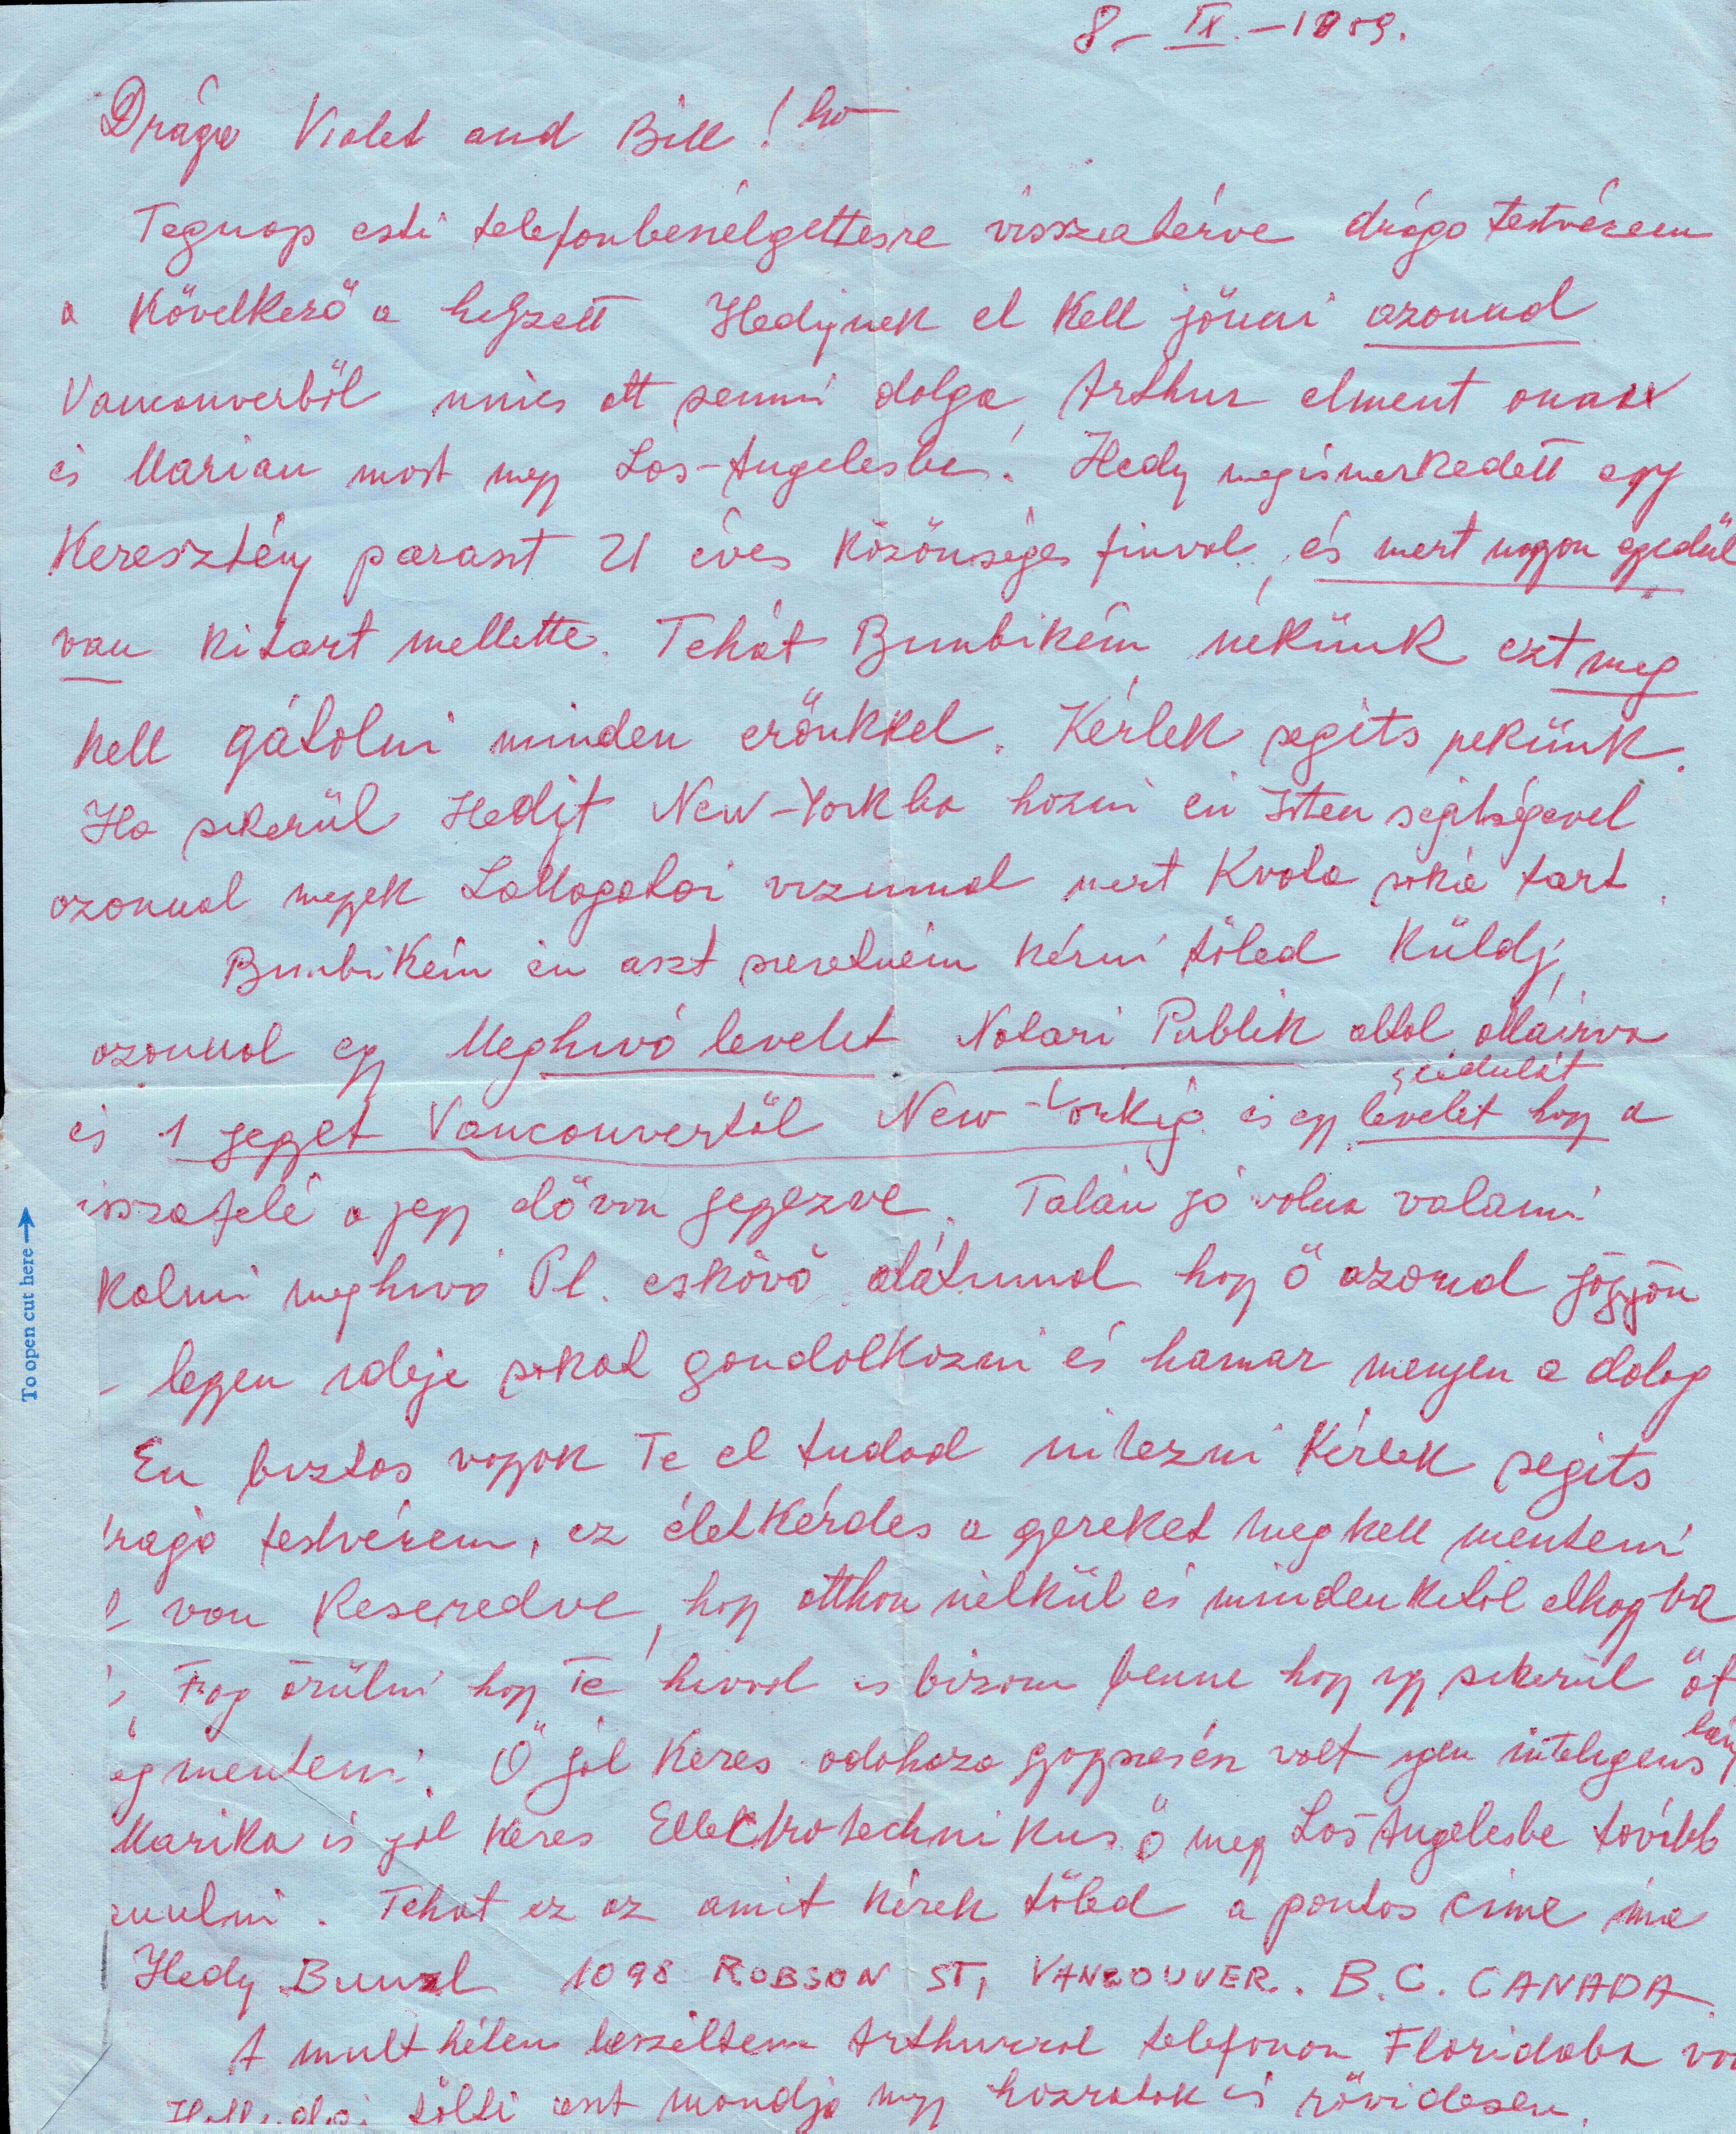 8 - IX. - 1959.
Drága Violet and Bill!
Tegnap esti telefonbeszélgettesre visszatérve drága testvérem
a Kövelkező a helyzett Hedynek el Kell jönni azonnal
Vancouverből nincs ott semmi dolga, Arthur elment onan
és Marian most megy Los-Angelesbe! Hedy megismerkedett egy
Keresztény paraszt 21 éves Közönséges fiuval, és mert nagyon egyedül
van Kitart mellette. Tehát Bimbikém nekünk ezt meg
Kell gátolni minden erönkkel. Kérlek segits nekünk.
Ha sikerül Hedyt New-Yorkba hozni én Isten segitségevel
azonnal megyek Lattogatoi vizummal mert Kvota soká tart.
Bimbikém én aszt szeretném Kérni töled Küldj,
azonnal egy Meghivó levelet Notari Publik altal alláirva
és 1 jegyet Vancouvertől New-Yorkig és egy levelet hogy a
visszafelé a jegy elö van jegyezve. Talán jó volna valami
Kalmi meghivó Pl. esküvő hogy ő azonnal jöjjön
legyen ideje sokat gondolkozni és hamar menyen a dolog
En biztos vagyok Te el tudod intezni Kérlek segits
drága testvérem, ez életKérdes a gyereket meg kell menteni
van Keseredve, hogy otthon nélkül és mindenkitöl elhagyva
Fog örülni hogy Te hivod és bizom benne hogy igy sikerül őt
meg menteni. Ő jól Keres odahaza gyogyszerész volt igen inteligens lány
Marika is jól Keres Ellektrotechnikus ő megy Los Angelesbe tovább
tanulni. Tehat ez az amit Kérek töled a pontos cime ime
Hedy Bunzl 1098 ROBSON ST, VANCOUVER. B.C. CANADA.
A mult héten beszéltem Arthurral telefonon Floridaba van
tölti aszt mondja megy hozzatok is rövidesen.
To open cut here →